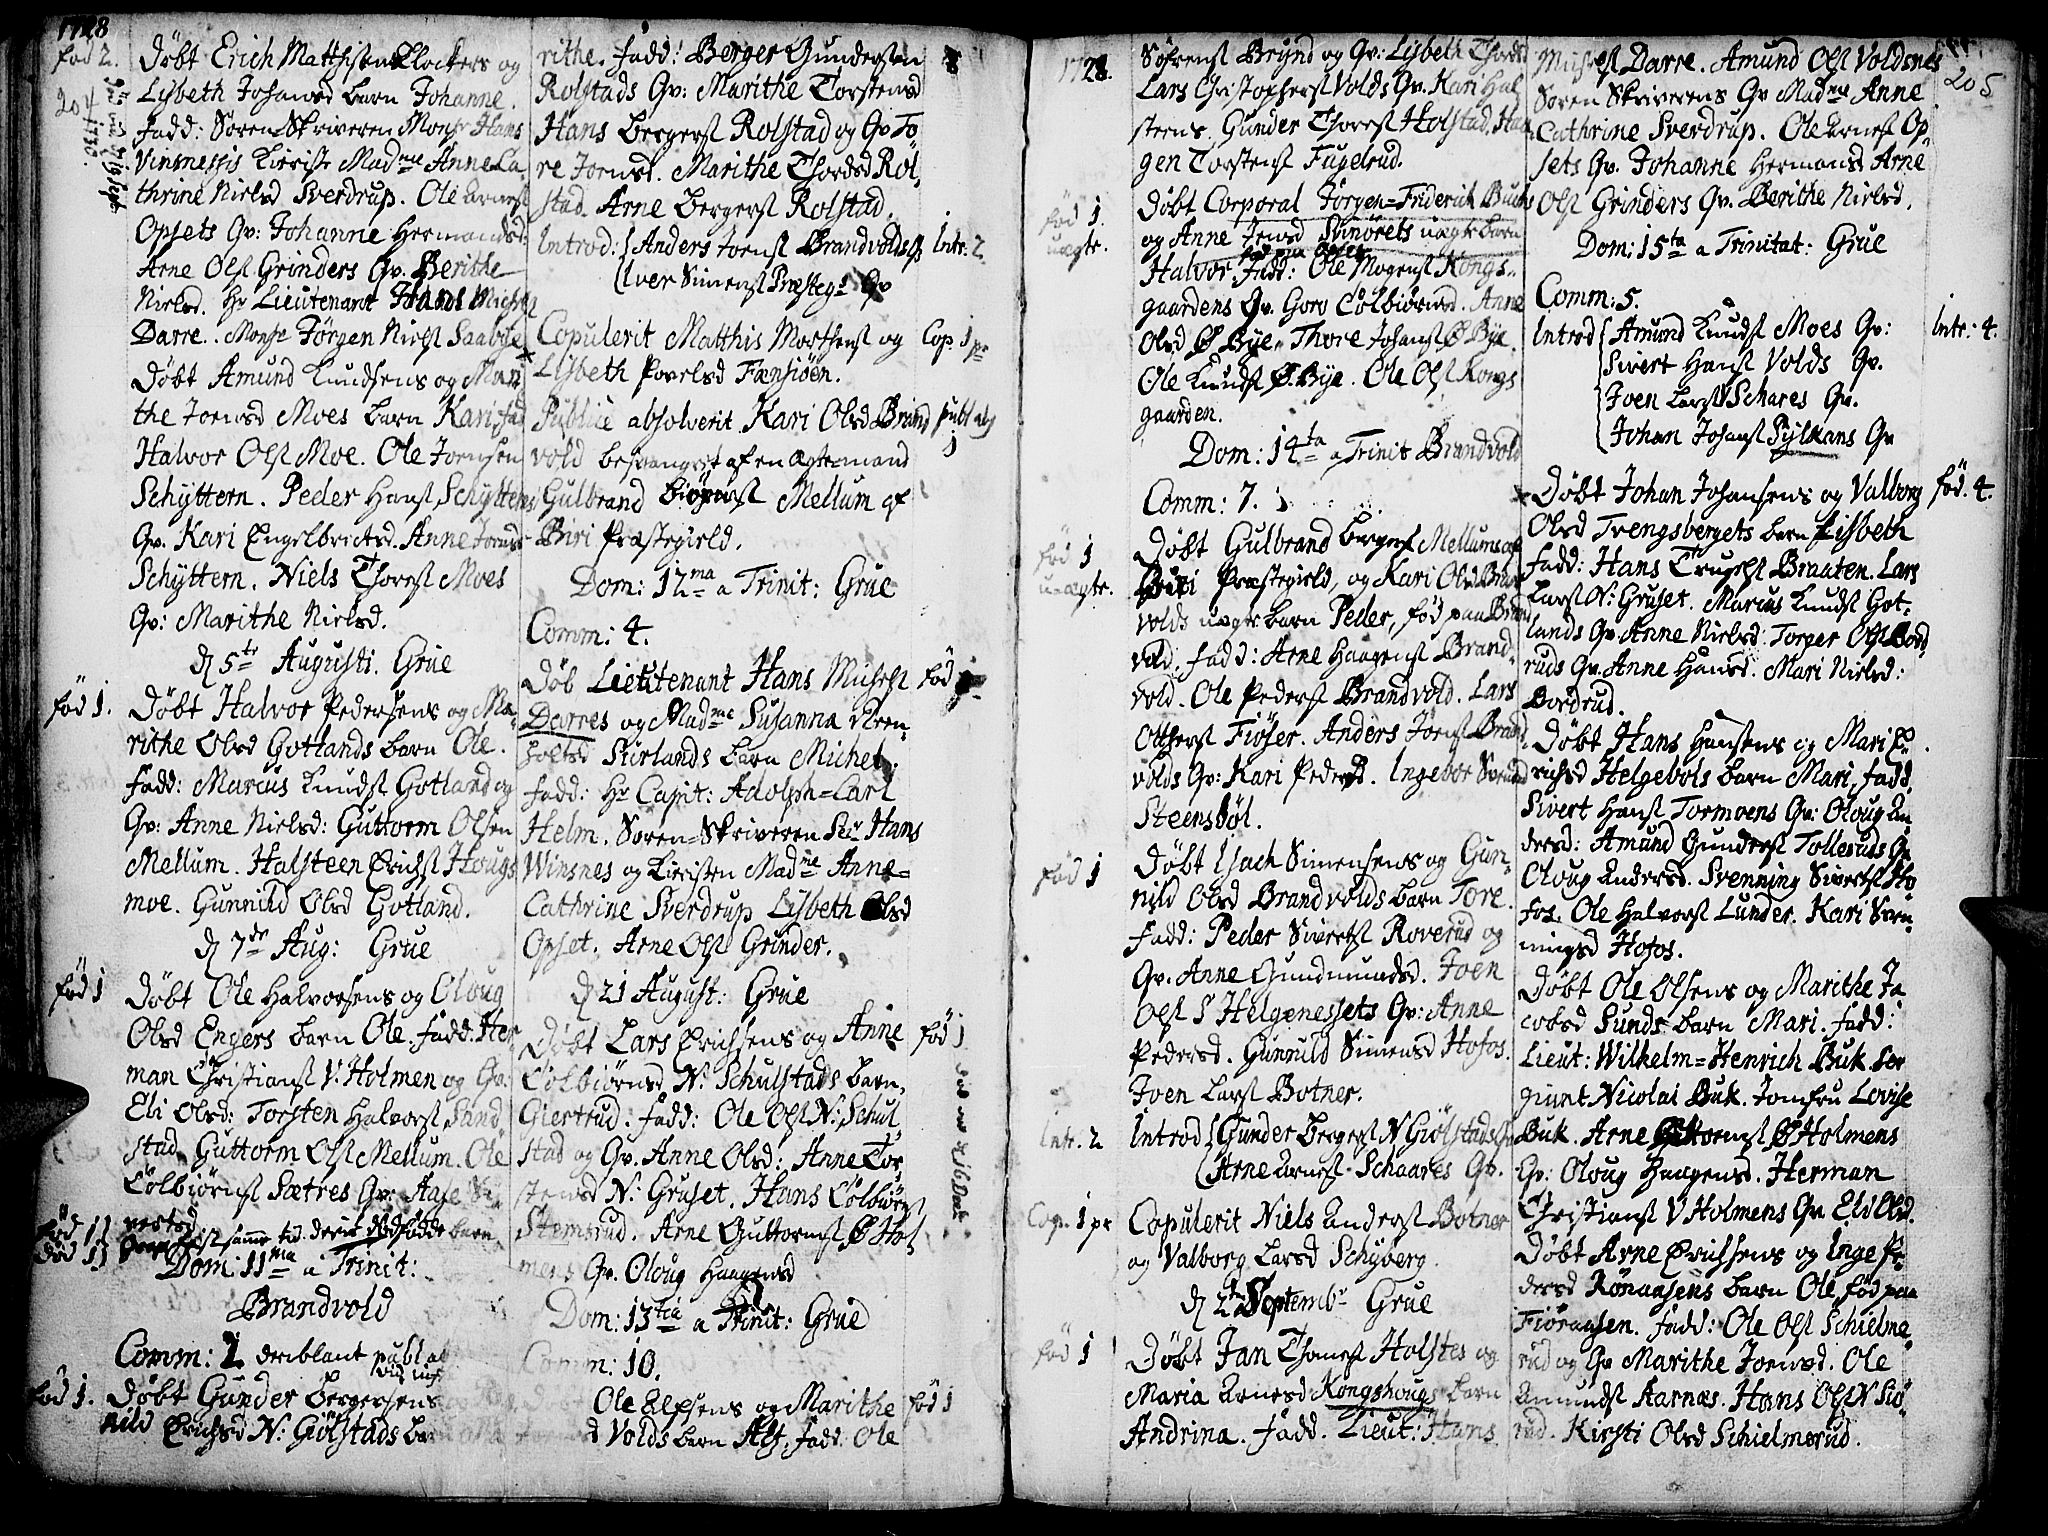 1728
204
fød 2.
Døbt Erich Matthisen Klockers og
Lisbeth Johansd barn Johanne.
Fadd: Soren-Skriveren Monsr Hans
Vinsnessis Kieriste Madme Anne Ca-
thrine Nielsd Sverdrup. Ole Arnest
Opsets Qv: Johanne Hermansd:
Arne Olst Grinders Qv. Berithe
Nielsd. Hr Lieutenant Hans Michelst
Darre. Monsr Jørgen Nielst Saabye
Døbt Amund Knudsens og Mari-
the Joensd Moes barn Kari, fad
Halvor Olst Moe. Ole Joensen
Schyttern. Peder Hanst Schytterns
Qv. Kari Engelbrectsd. Anne Joensd
Schyttern. Niels Thorest Moes
Qv: Marithe Nielsd.
d 5te Augusti. Grue
fød 1.
Døbt Halvor Pedersens og Ma-
rithe Olsd Gotlands barn Ole.
Fadd: Marcus Knudst Gotland og
Qv: Anne Nielsd: Guttorm Olsen
Mellum. Halsteen Erichst Hougs
moe. Gunnild Olsd Gotland.
d 7de Aug: Grue
fød 1
Døbt Ole Halvorsens og Oloug
Olsd Engers barn Ole. Fadd. Her
man Christianst V: Holmen og Qv.
Eli Olsd: Torsten Halvorst Sand
stad. Guttorm Olst Mellum. Ole
Colbiørnst Sætres Qv: Aase
fød 1
død 1
samme tid deris
barn
Dom: 11ma a Trinit:
Brandvold
Comm: 2 deriblant publ ab
fød 1.
Døbt Gunder Bergersens
nild Erichsd N: Giølstads barn
rithe. Fadd: Berger Gundersen
Rolstads Qv: Marithe Torstensd
Hans Bergerst Rolstad og Qv To-
re Joensd. Marithe Thordsd Rol-
stad. Arne Bergerst Rolstad.
Introd: Anders Joenst Brandvolds Intr. 2
Iver Simenst Præsteg: Qv
Copulerit Matthis Morthenst og Cop. 1 pr
Lisbeth Povelsd Fænsiøen.
Publice absolverit Kari Olsd Brand publ abs
vold besvangret af en Ægte-mand 1
Gulbrand Biørnst Mellum af
Biri Præstegield.
Dom: 12ma a Trinit: Grue
Comm: 4.
Døb Lieutenant Hans Michelst fød
Darres og Madme Susanna Reen-
holtsd Stirlands barn Michel.
Fadd: Hr Capit: Adolph=Carl
Helm. Soren=Skriveren Sr Hans
Winsnes og Kiersten Madme Anne=
Cathrine Sverdrup Lisbeth Olsd
Opset. Arne Olst Grinder.
d 21 August: Grue
Døbt Lars Erichsens og Anne fød 1
Colbiørnsd N: Schulstads barn
Giertrud. Fadd: Ole Olst N: Schul
stad og Qv. Anne Olsd: Anne Tor
stensd N: Gruset. Hans Colbiørnst
Stemsrud. Arne Guttormst Ø Hol
mens Qv. Oloug Haagensd
Dom: 13tia a Trinit: Grue
Comm: 10.
Ole Elefsens og Marithe fød 1
Volds barn Alf, Fadd. Ole
1728.
Sørenst Brynd og Qv: Lisbeth Thordsd
Lars Christopherst Volds Qv. Kari Hal
steens. Gunder Thorest Holstad, Haa
gen Torstenst Fugelrud.
fød 1
uægte.
Døbt Corporal Jørgen=Friderich Buchs
og Anne Jensd Svinørets uægte barn
Halvor. Fadd: Ole Mogenst Kongs-
gaardens Qv. Goro Colbiørnsd. Anne
Olsd Ø Bye. Thore Johanst Ø Bye.
Ole Knudst Ø. Bye. Ole Olst Kongs
gaarden.
Dom: 14ta a Trinit Brandvold
Comm: 7.
fød 1
u-ægte.
Døbt Gulbrand Bergerst Mellums af
Biri Præstegield, og Kari Olsd Brand
volds uægte barn Peder, fød paa Brand
vold. Fadd: Arne Haagenst Brand-
vold. Ole Pederst Brandvold. Lars
Ottherst Fiøser. Anders Joenst Brand
volds Qv: Kari Pedersd. Ingebor Svensd
Steensbøl.
fød 1
Døbt Isach Simensens og Gun-
nild Olsd Brandvolds barn Tore.
Fadd: Peder Sivertst Roverud og
Qv. Anne Gundmundsd. Joen
Olst S Helgenessets Qv: Anne
Pedersd. Gunnild Simensd Hofos.
Joen Larst Botner.
Intr. 2 Introd Gunder Bergerst N Giølstads Qv
Arne Arnest Schaares Qv.
Cop. 1 pr Copulerit Niels Anderst Botner
og Valborg Larsd Schyberg.
d 2den Septembr Grue
fød 1 Døbt Jan Thomest Holstes og
Maria Arnesd Kongshougs barn
Andrina. Fadd. Lieut: Hans
205
Michelst Darre. Amund Olst Voldsnes
Soren Skriverens Qv Madme Anne
Cathrine Sverdrup. Ole Arnest Op
sets Qv. Johanne Hermansd Arne
Olst Grinders Qv. Berithe Nielsd.
Dom: 15ta a Trinitat: Grue
Comm: 5.
Introd Amund Knudst Moes Qv: Intr: 4.
Sivert Hanst Volds Qv.
Joen Larst Schares Qv.
Johan Johanst Pylkans Qv
Døbt Johan Johansens og Valborg fød. 4.
Olsd Trengsbergets barn Lisbeth
Fadd: Hans Trugelst Braaten. Lars
Larst N: Gruset. Marcus Knudst Got-
lands Qv. Anne Nielsd. Torger Olst Bord
ruds Qv. Anne Hansd. Mari Nielsd:
Bordrud.
Døbt Hans Hansens og Mari E-
richsd Helgebols barn Mari, Fadd.
Sivert Hanst Tormoens Qv: Oloug An
dersd: Amund Gunderst Tolleruds Qv
Oloug Andersd. Svenning Sivertst Ho
fos. Ole Halvorst Lunder. Kari Sven
ningsd Hofos.
Døbt Ole Olsens og Marithe Ja
cobsd Sunds barn Mari. Fadd:
Lieut: Wilhelm=Henrich Buk. Ser
giant Nicolai Buk. Jomfru Lovise
Buk. Arne Guttormst Ø Holmens
Qv: Oloug Haagensd. Herman
Christianst V Holmens Qv Eli Olsd.
Døbt Arne Erichsens og Inge Pe
dersd Rønaasens barn Ole, fød paa
Fiøraasen. Fadd: Ole Olst Schielme
rud og Qv Marithe Joensd. Ole
Amundst Aarnæs. Hans Olst N Siø
rud. Kirsti Olsd Schielmerud.